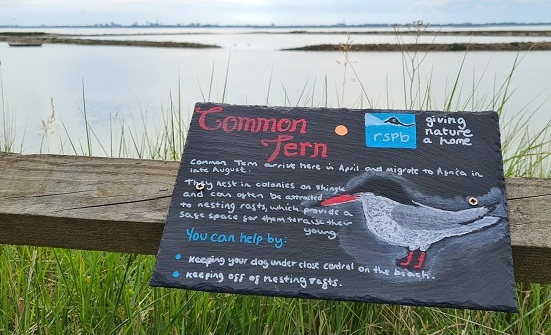 Common
Tern
rspb
giving
nature
a home
Common Tern arrive here in April and migrate to Africa in
late August.
They nest in colonies on shingle
and can often be attracted
to nesting rafts, which provide a
safe space for them to raise their
young.
You can help by:
• Keeping your dog under close control on the beach.
• Keeping off of nesting rafts.